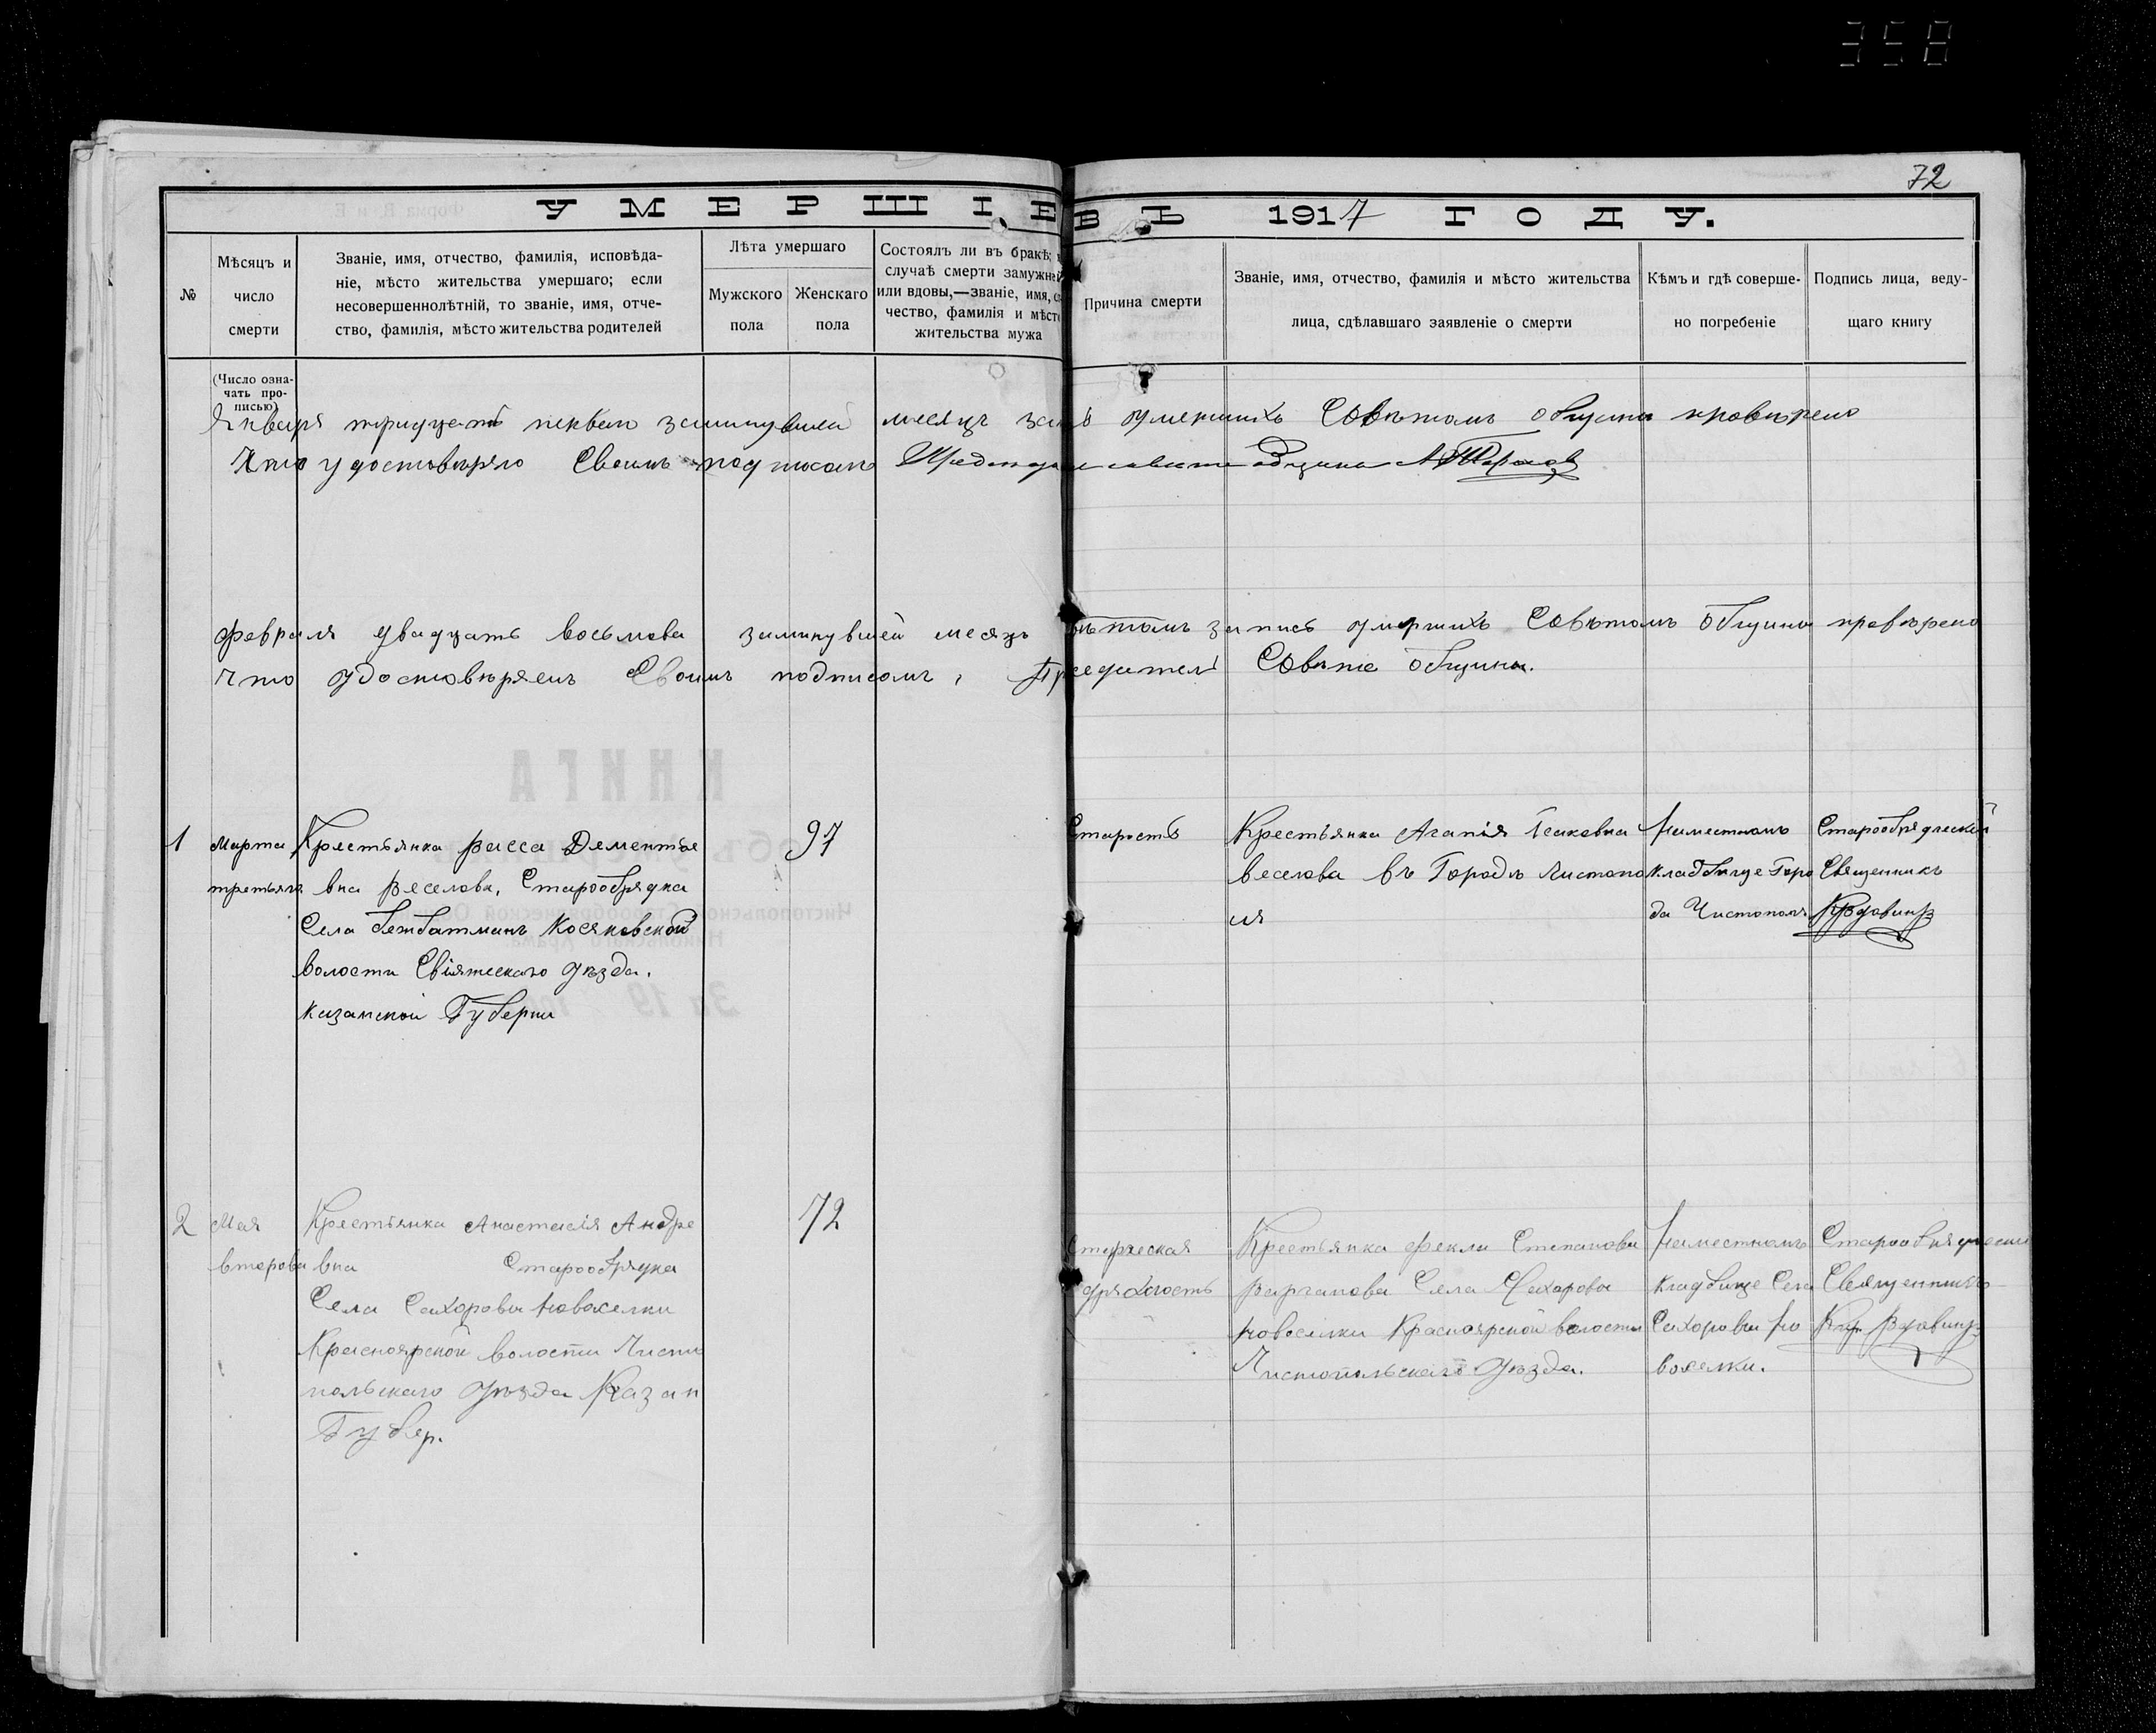 358
72
УМЕРШІЕ ВЪ 1917 ГОДУ.
№
Мѣсяцъ и
число
смерти
Званіе, имя, отчество, фамилія, исповѣда-
ніе, мѣсто жительства умершаго; если
несовершеннолѣтній, то званіе, имя, отче-
ство, фамилія, мѣсто жительства родителей
Лѣта умершаго
Мужского
пола
Женскаго
пола
Состоялъ ли въ бракѣ;
случаѣ смерти замужней
или вдовы,—званіе, имя,
чество, фамилія и мѣсто
жительства мужа
Причина смерти
Званіе, имя, отчество, фамилія и мѣсто жительства
лица, сдѣлавшаго заявленіе о смерти
Кѣмъ и гдѣ соверше-
но погребеніе
Подпись лица, веду-
щаго книгу
(Число озна-
чать про-
писью)
Января тридцать первом заминувшей месяц умерших Совѣтом общины проверено
Что удостоверяю Своим подписом общины
февраля двадцать восьмова заминувшей месяц запись умерших Совѣтомъ общины проверено
Что удостоверяем Своимъ подписомъ, Совѣта общины.
1
Марта
третьяго
Крестьянка васса Дементье
вна веселова, Старообрядка
Села Бетбатманъ Косяковской
волости Свіятскаго уѣзда.
казанской Губерни
97
Старость
Крестьянка Агапія Исаковна
веселова въ Городѣ Чистопо
ля
На местномъ
кладбище Горо
да Чистополя
Старообрядческий
Священникъ
Вдовинъ
2
Мая
второва
Крестьянка Анастасія Андре
вна Старообрядка
Села Сахарова новоселки
Красноярской волости Чисто
польскаго уѣзда Казан
Губер.
72
Старческая
дряхлость
Крестьянка фекла Степанова
варганова Села Сахарова
новоселки Красноярской волости
Чистопольскаго уѣзда.
На местномъ
кладбище Села
Сахарова но
воселки.
Старообрядчески
Священникъ
Вдовинъ
КНИГА